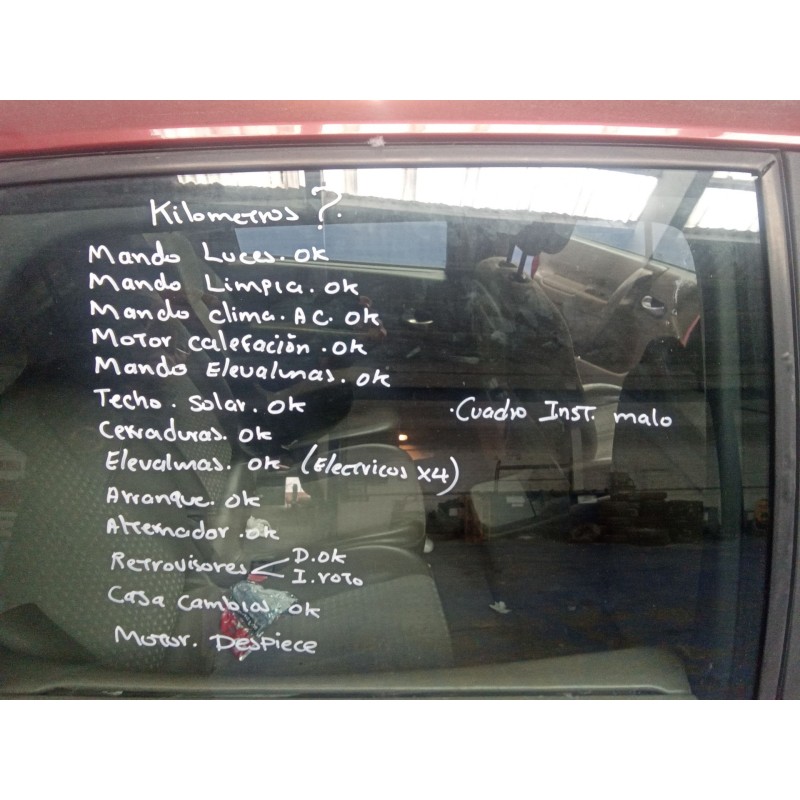 Kilometros ?.
Mando Luces. ok
Mando Limpia. ok
Mando clima. A C. ok
Motor calefación. ok
Mando Elevalunas. ok
Techo. Solar. ok
·Cuadro Inst. malo
Cerraduras. ok
Elevalunas. ok (Electricos x4)
Arranque. ok
Alternador. ok
Retrovisores D. ok
I. roto
Casa Cambios. ok
Motor. Despiece